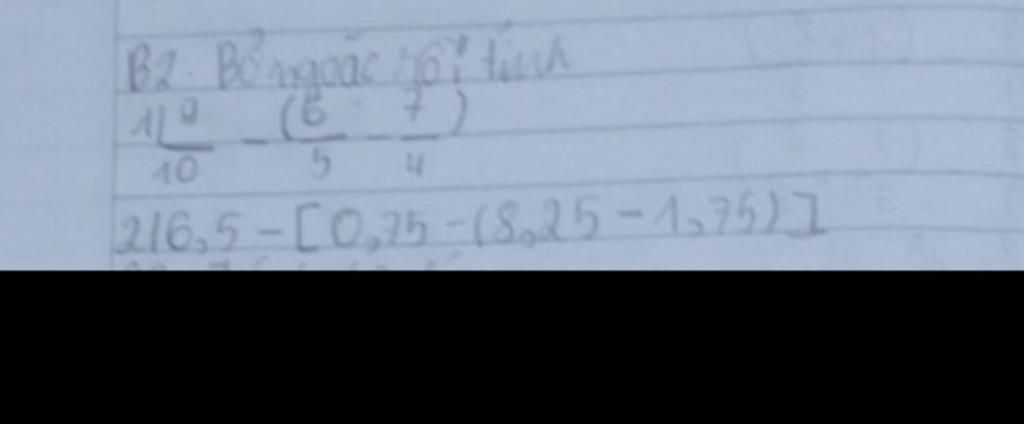 B2. Bỏ ngoặc rồi tính
1/ 9/10 - (6/5 - 7/4)
2/6,5 - [0,75 - (8,25 - 1,75)]